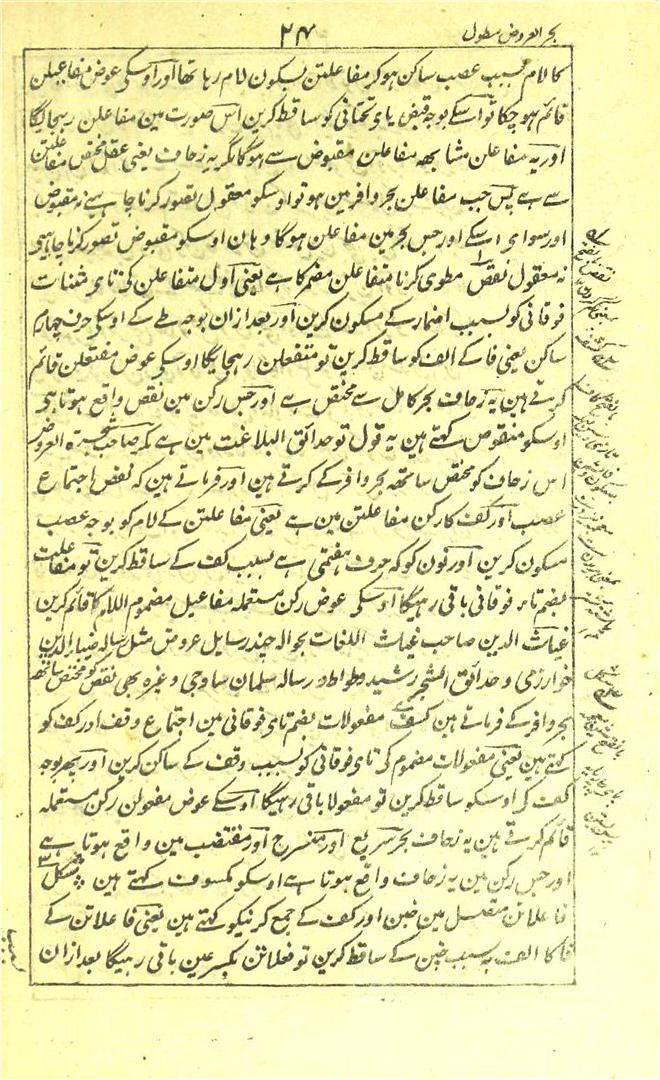 بحر العروض مطول
۲۴
کا لام بسبب عصب ساکن ہوکر مفاعلتن بسکون لام رہا تھا اور اوسکی عوض مفاعیلن
قائم ہوچکا تو اسکے بوجہ قبض یای تحتانی کو ساقط کرین اس صورت مین مفاعلن رہجائیگا
اور یہ مفاعلن مشابھہ مفاعلن مقبوض سے ہوگا مگر یہ زحاف یعنی عقل مختص مفاعلتن
سے ہے پس جب مفاعلن بحر وافر مین ہو تو اوسکو معقول تصور کرنا چاہیے نہ مقبوض
اور سوای اسکے اور جس بحر مین مفاعلن ہوگا وہان اوسکو مقبوض تصور کرنا چاہیے
نہ معقول نقص مطوی کرنا متفاعلن مضمر کا ہے یعنی اول متفاعلن کی تای مثنات
فوقانی کو بسبب اضمار کے مسکون کرین اور بعد ازان بوجہ طے کے اوسکی حرف چہارم
ساکن یعنی فا کے الف کو ساقط کرین تو متفعلن رہجایگا اوسکی عوض مفتعلن قائم
کرتے ہین یہ زحاف بحر کامل سے مختص ہے اور جس رکن مین نقص واقع ہوتا ہی
اوسکو منقوص کہتے ہین یہ قول تو حدائق البلاغت مین ہے مگر صاحب شجرۃ العروض
اس زحاف کو مختص ساتھہ بحر وافر کے کرتے ہین اور فرماتے ہین کہ نقص اجتماع
عصب اور کف کا رکن مفاعلتن مین ہے یعنی مفاعلتن کے لام کو بوجہ عصب
مسکون کرین اور نون کو کہ حرف ہفتمی ہے بسبب کف کے ساقط کرین تو مفاعلت
بضم تاء فوقانی باقی رہیگا اوسکی عوض رکن مستعملہ مفاعیل مضموم اللام کا قائم کرین
غیاث الدین صاحب غیاث اللغات بحوالہ چند رسایل عروض مثل رسالہ ضیاء الدین
خوارزمی و حدائق الشجر رشید وطواط و رسالہ سلمان ساوجی وغیرہ بھی نقص کو مختص ساتھہ
بحر وافر کے فرماتے ہین کسف مفعولات بضم تای فوقانی مین اجتماع وقف اور کف کو
کہتے ہین یعنی مفعولات مضموم کی تای فوقانی کو بسبب وقف کے ساکن کرین اور پھر بوجہ
کف کی اوسکو ساقط کرین تو مفعولا باقی رہیگا اوسکے عوض مفعولن رکن مستعملہ
قائم کرتے ہین یہ زحاف بحر سریع اور منسرح اور مقتضب مین واقع ہوتا ہے
اور جس رکن مین یہ زحاف واقع ہوتا ہے اوسکو مکسوف کہتے ہین شکل
فاعلاتن متصل مین خبن اور کف کے جمع کرنیکو کہتے ہین یعنی فاعلاتن کے
فا کا الف بسبب خبن کے ساقط کرین تو فعلاتن بکسر عین باقی رہیگا بعد ازان